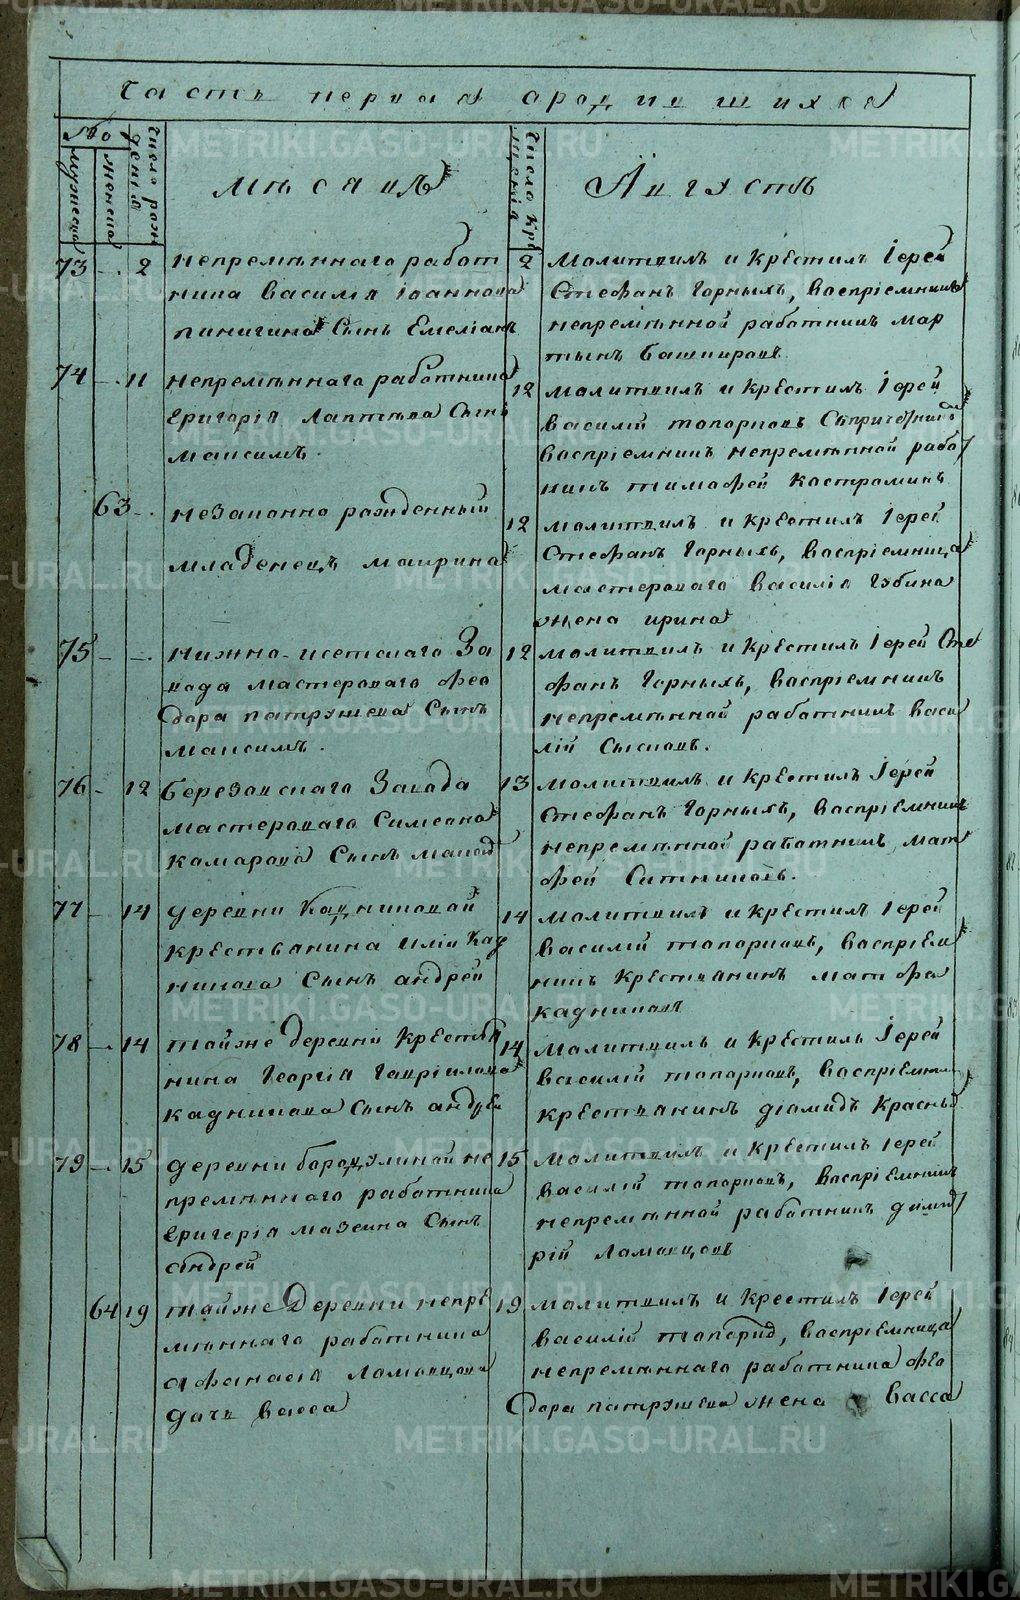 METRIKI.GASO-URAL.RU
Часть первая ародившихся
№ мужеска
женска
Число рождения
Месяцъ
Число крещения
Августъ
73 - 2 непремѣннаго работ
ника василия Iоаннова
пинигина Сынъ Емелiанъ
2 Молитвилъ и Крестилъ Iерей
Стефанъ Горныхъ, Воспрiемникъ
непремѣнной работникъ Мар
тынъ Башкировъ
74 - 11 непремѣннаго работника
Григорiя Лаптева Сынъ
Максимъ.
12 Молитвилъ и Крестилъ Iерей
василiй топорковъ Спричетникомъ
воспрiемникъ непремѣнной рабо
никъ тимофей Костроминъ
63 - незаконно рожденный
младенецъ маирина
12 Молитвилъ и Крестилъ Iерей
Стефанъ Горныхъ, воспрiемница
мастероваго василiя Губина
жена ирина
75 - - нижно-исетскаго За
вода Мастероваго Фео
дора патрушева Сынъ
Максимъ.
12 молитвилъ и Крестилъ Iерей Сте
фанъ Горныхъ, воспрiемникъ
непремѣнной работникъ васи
лiй Сысковъ.
76 - 12 березовскаго Завода
мастероваго Симеона
Камарова Сынъ
13 Молитвилъ и Крестилъ Iерей
Стефанъ Горныхъ, воспрiемникъ
непремѣнной работникъ мат
фей Ситниковъ.
77 - 14 деревни Кадниковой
крестьянина Илiи Кад
никова Сынъ андрей
14 Молитвилъ и Крестилъ Iерей
василiй топорковъ, воспрiем
никъ крестьянинъ матфей
кадниковъ
78 - 14 тойже деревни Крестья
нина Георгiя Гаврiилова
кадникова Сынъ андрей
14 Молитвилъ и Крестилъ Iерей
василiй топорковъ, воспрiемникъ
крестьянинъ дiомидъ
79 - 15 деревни бородулиной не
премѣннаго работника
Григорiя мазеина Сынъ
андрей
15 Молитвилъ и Крестилъ Iерей
василiй топорковъ, воспрiемникъ
непремѣнной работникъ димит
рiй Ломовцовъ
64 19 тойже Деревни непре
мѣннаго работника
афанасiя Ломовцова
дочь васса
19 молитвилъ и Крестилъ Iерей
василiй, воспрiемница
непремѣннаго работника Фео
дора патрушева жена Васса